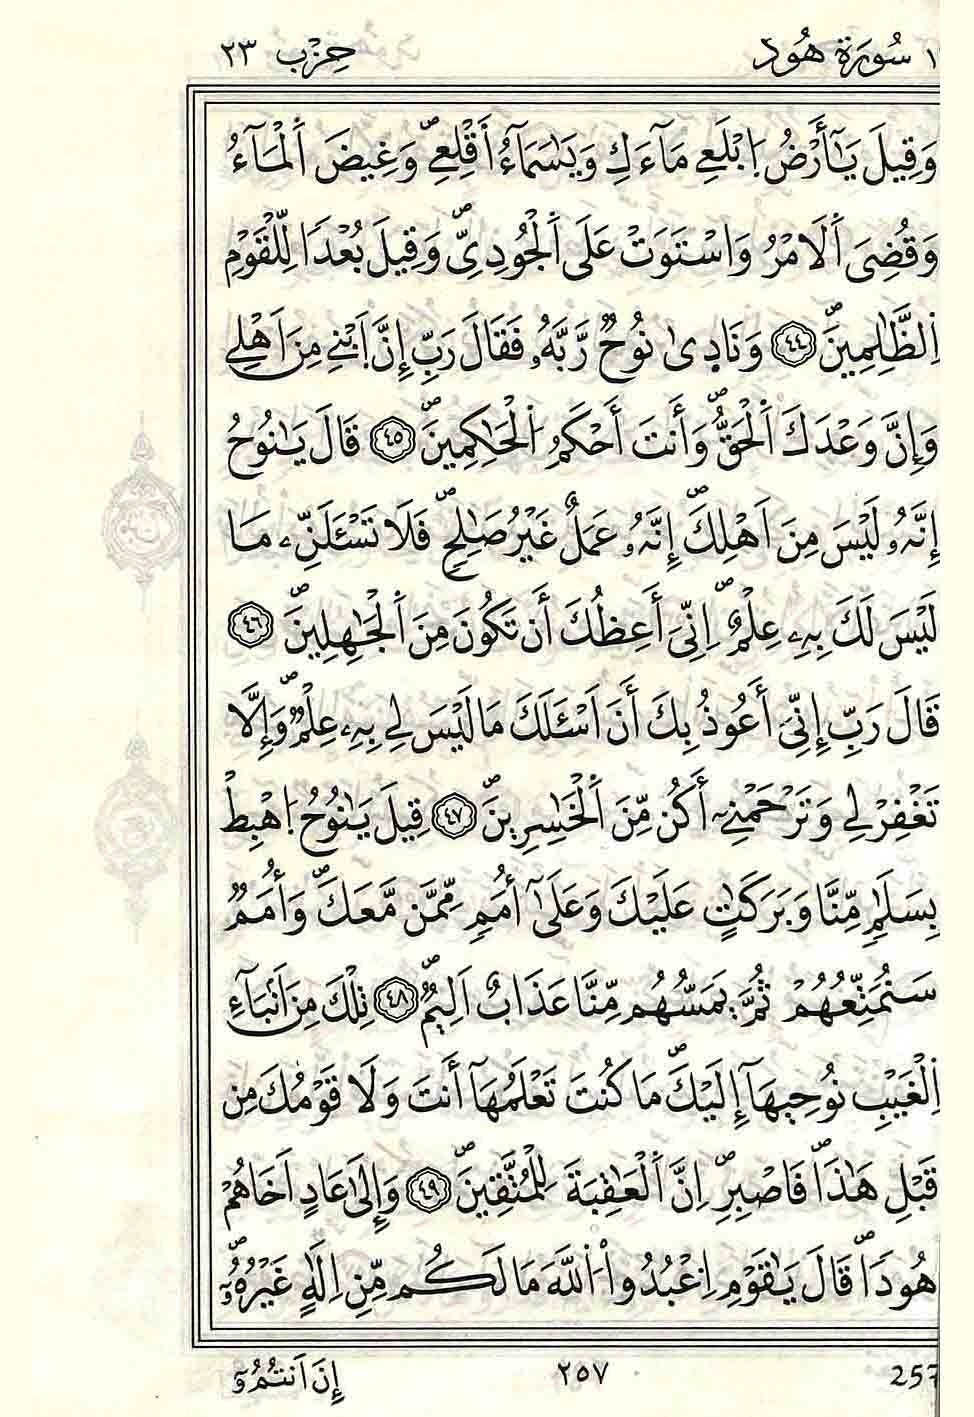 ١ سُورَةُ هُود حِزْب ٢٣
وَقِيلَ يَٰٓأَرْضُ اُ۪بْلَعِے مَآءَكِ وَيَٰسَمَآءُ اَ۬قْلِعِےۖ وَغِيضَ اَ۬لْمَآءُ
وَقُضِيَ اَ۬لَامْرُ وَاسْتَوَتْ عَلَي اَ۬لْجُودِيِّۖ وَقِيلَ بُعْداٗ لِّلْقَوْمِ
اِ۬لظَّٰلِمِينَۖ ٤٤ وَنَادٜىٰ نُوحٞ رَّبَّهُۥ فَقَالَ رَبِّ إِنَّ اَ۪بْنِے مِنَ اَهْلِے
وَإِنَّ وَعْدَكَ اَ۬لْحَقُّۖ وَأَنتَ أَحْكَمُ اُ۬لْحَٰكِمِينَۖ ٤٥ قَالَ يَٰنُوحُ
إِنَّهُۥ لَيْسَ مِنَ اَهْلِكَۖ إِنَّهُۥ عَمَلٌ غَيْرُ صَٰلِحٖۖ فَلَا تَسْـَٔلَنِّۦ مَا
لَيْسَ لَكَ بِهِۦ عِلْمٌۖ اِنِّيَ أَعِظُكَ أَن تَكُونَ مِنَ اَ۬لْجَٰهِلِينَۖ ٤٦
قَالَ رَبِّ إِنِّيَ أَعُوذُ بِكَ أَنَ اَسْـَٔلَكَ مَا لَيْسَ لِے بِهِۦ عِلْمٞۖ وَإِلَّا
تَغْفِرْ لِے وَتَرْحَمْنِےٓ أَكُن مِّنَ اَ۬لْخَٰسِرِينَۖ ٤٧ قِيلَ يَٰنُوحُ اُ۪هْبِطْ
بِسَلَٰمٖ مِّنَّا وَبَرَكَٰتٍ عَلَيْكَ وَعَلَىٰٓ أُمَمٖ مِّمَّن مَّعَكَۖ وَأُمَمٞ
سَنُمَتِّعُهُمْ ثُمَّ يَمَسُّهُم مِّنَّا عَذَابٌ اَلِيمٞۖ ٤٨ تِلْكَ مِنَ اَنۢبَآءِ
اِ۬لْغَيْبِ نُوحِيهَآ إِلَيْكَۖ مَا كُنتَ تَعْلَمُهَآ أَنتَ وَلَا قَوْمُكَ مِن
قَبْلِ هَٰذَاۖ فَاصْبِرِۖ اِنَّ اَ۬لْعَٰقِبَةَ لِلْمُتَّقِينَۖ ٤٩ وَإِلَىٰ عَادٍ اَخَاهُمْ
هُوداٗۖ قَالَ يَٰقَوْمِ اِ۟عْبُدُوا۟ اُ۬للَّهَ مَا لَكُم مِّنِ اِلَٰهٍ غَيْرُهُۥٓۖ
257 ٢٥٧ إِنَ اَنتُمُۥٓ